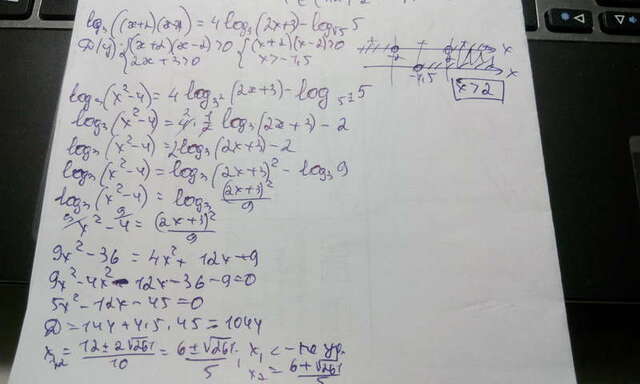 log₃((x+2)(x-2)) = 4log₉(2x+3) - log√5 5
D(y): {(x+2)(x-2)>0 {(x+2)(x-2)>0
2x+3>0 x>-1,5
+ - + x
-2 2
-1,5 x
x>2
log₃(x²-4) = 4 log₃²(2x+3) - log 5^½ 5
log₃(x²-4) = 4·½ log₃(2x+3) - 2
log₃(x²-4) = 2log₃(2x+3) - 2
log₃(x²-4) = log₃(2x+3)² - log₃9
log₃(x²-4) = log₃ (2x+3)²/9
9/ x²-4 = (2x+3)²/9
9x²-36 = 4x²+12x+9
9x²-4x²-12x-36-9=0
5x²-12x-45=0
D=144+4·5·45=1044
x₁,₂ = (12±2√261)/10 = (6±√261)/5; x₁ < -не ур.
x₂ = (6+√261)/5